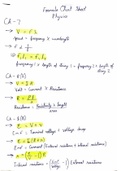 Formula Cheat Sheet
Physics
Ch - 7
→ V = f λ
Speed = frequency × wavelength
→ f ∝ 1/
→ F₁ L₁ = F₂ L₂
frequency × length of string 1 = frequency × length of string 2
Ch - 8 (A)
→ V = I R
Volt = Current × Resistance
→ R =
Resistance = Resistivity × length
Ch - 8 (B)
→ = V + V
E.m.f = Terminal voltage + voltage drop
→ E = I (R + r)
E.m.f = Current (external resistance + internal resistance)
→ r = (E/V - 1) R
Internal resistance = (e.m.f/Voltage - 1) External resistance